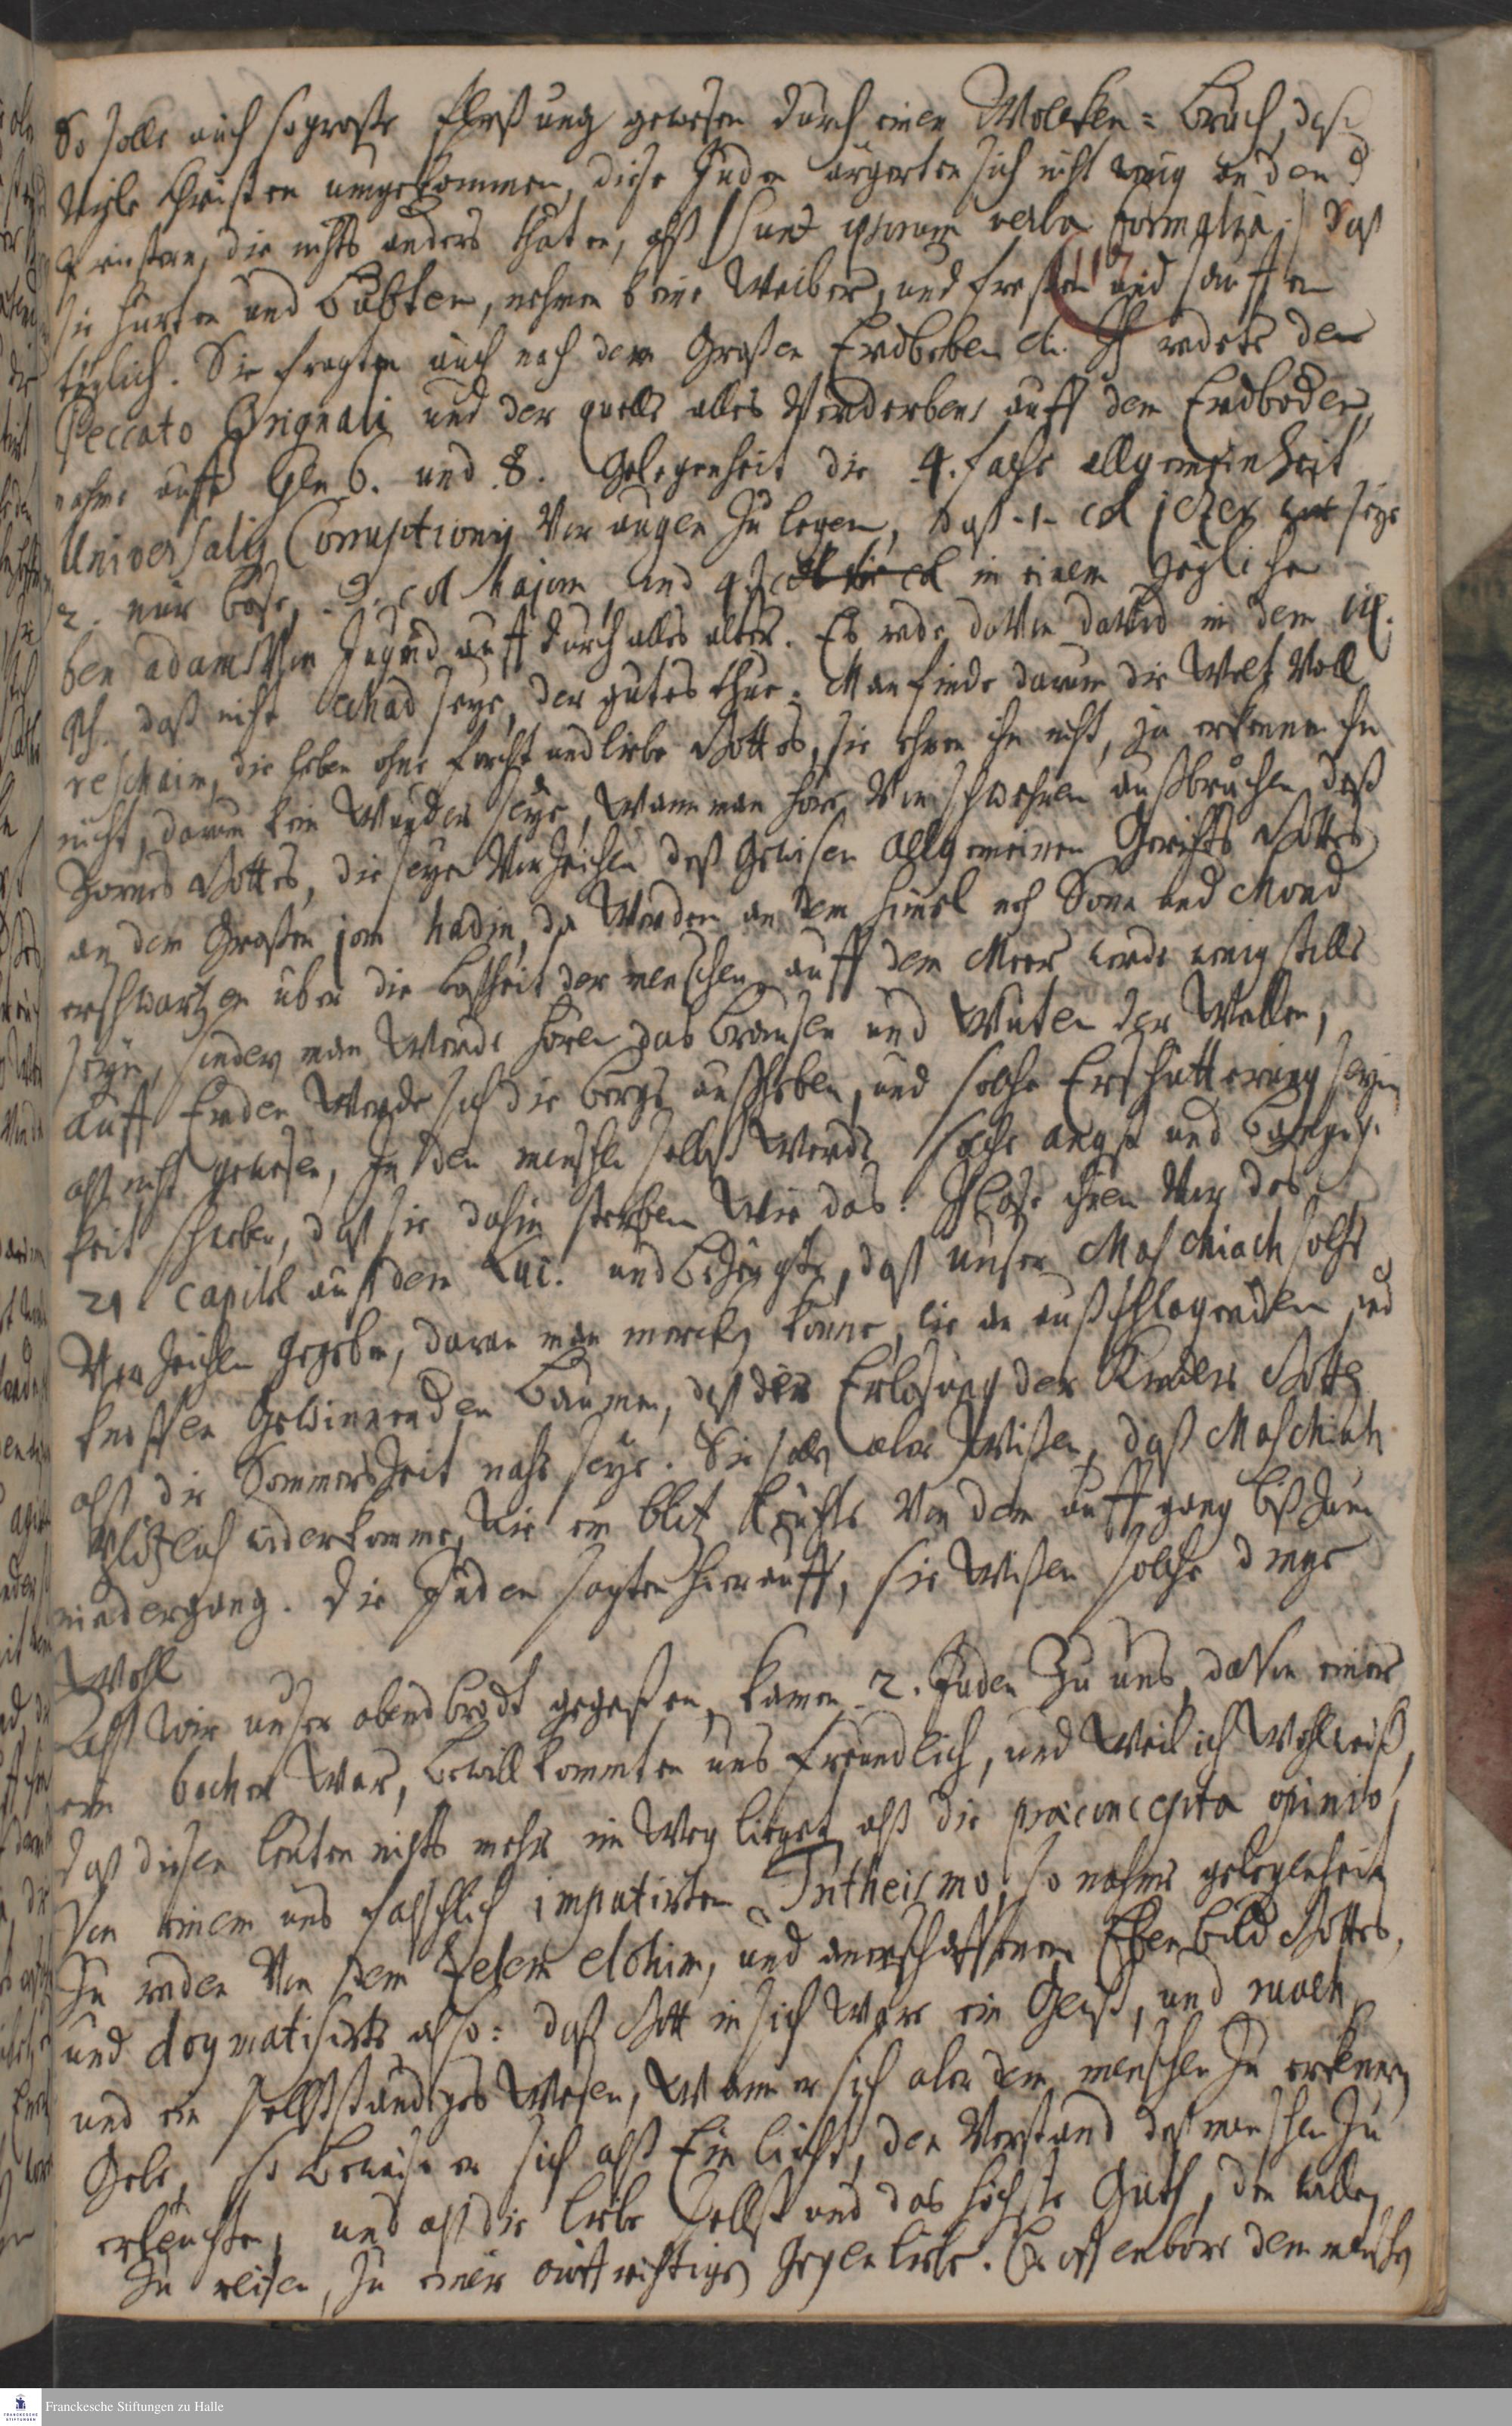 So solle auch so große flößung gewesen durch einen Wolcken=Bruch, daß
Viele Christen umgekommen, diese Juden ärgerten sich nicht wenig an den
Christen, die nichts anders thaten, alß (sunt ipsorum verba formalia) daß
sie hurten und Bubten, nehmen keine Weiber, und freßen und sauffen
täglich. Sie fragten auch nach dem Großen Erdbeben etc. Ich redete de
Peccato Originali und der quelle alles Verderbens auff dem Erdboden,
nahme auß Gen 6. und 8. Gelegenheit die 4. fache allgemeinheit
Universalis Corruptionis Vor augen zu legen, daß -1- col jezer seye
2. nur böse, -3. col hajom und 4. in einem jegliche
ben adams Von Jugend auff durch alles alter. Es rede davon David in dem
Ps. daß nicht echad seye, der gutes thue. Man finde darum die Welt Voll
reschaim, die leben ohne forcht und liebe Gottes, sie ehren ihn nicht, ja erkennen ihn
nicht, darum kein Wunder seye, Wann man höre Von schwehren außbrüchen deß
Zornes Gottes, die seyen Vorzeichen deß Gewisen allgemeinen Gerichts Gottes
an dem Großen jom hadin, da Werden an dem himel noch Sonn und Mond
erschwartzen über die boßheit der menschen, auff dem Meer werde wenig stille
seyn, sondern man Werde hören das brausen und Wüten der Wellen,
auff Erden Werde sich die berge auffheben, und solche Erschütterung seyn
alß nicht gewesen, In den menschen selbst Werde solche angst und Bangig
keit schweben, daß sie dahin sterben Wie das. Ich lase ihnen Vor das
21. Capitel auß dem Luc. und bezeugte, daß unser Maschiach solche
Vorzeichen gegeben, daran man mercken könne, wie an außschlagenden und
knospen Gewinnenden Bäumen, daß der Erlösung der Kinder Gottes
alß die Sommerszeit nahe seye. Sie solen aber Wißen, daß Maschiach
Plötzlich widerkomme, Wie ein blitz leuchte Von dem auffgang biß zum
niedergang. Die Juden sagten hierauff, sie Wißen solche dinge
Wohl
Alß Wir unser abendbrodt gegeßen, kamen 2. Juden Zu uns davon einer
ein bocher War, bewillkommten uns freundlich, und Weil ich Wohl weiß,
daß diesen leuten nichts mehr im Weg lieget alß die præconcepta opinio
Von einem uns falschlich imputirten Tritheismo, so nahme gelegenheit
zu reden Von dem zelem elohim, und anerschaffenem Ebenbild Gottes,
und dogmatisirte also: daß Gott in sich Wäre ein Geist, und ruach
und ein selbstständiges Wesen, Wann er sich aber dem menschen zu erkennen
Gebe, so beweise er sich alß Ein licht, den Verstand deß menschen zu
erleuchten, und alß die liebe selbst und das höchste Guth, den willen
zu reisen, zu einer auffrichtigen Gegenliebe. Er offenbare dem menschen
Franckesche Stiftungen zu Halle